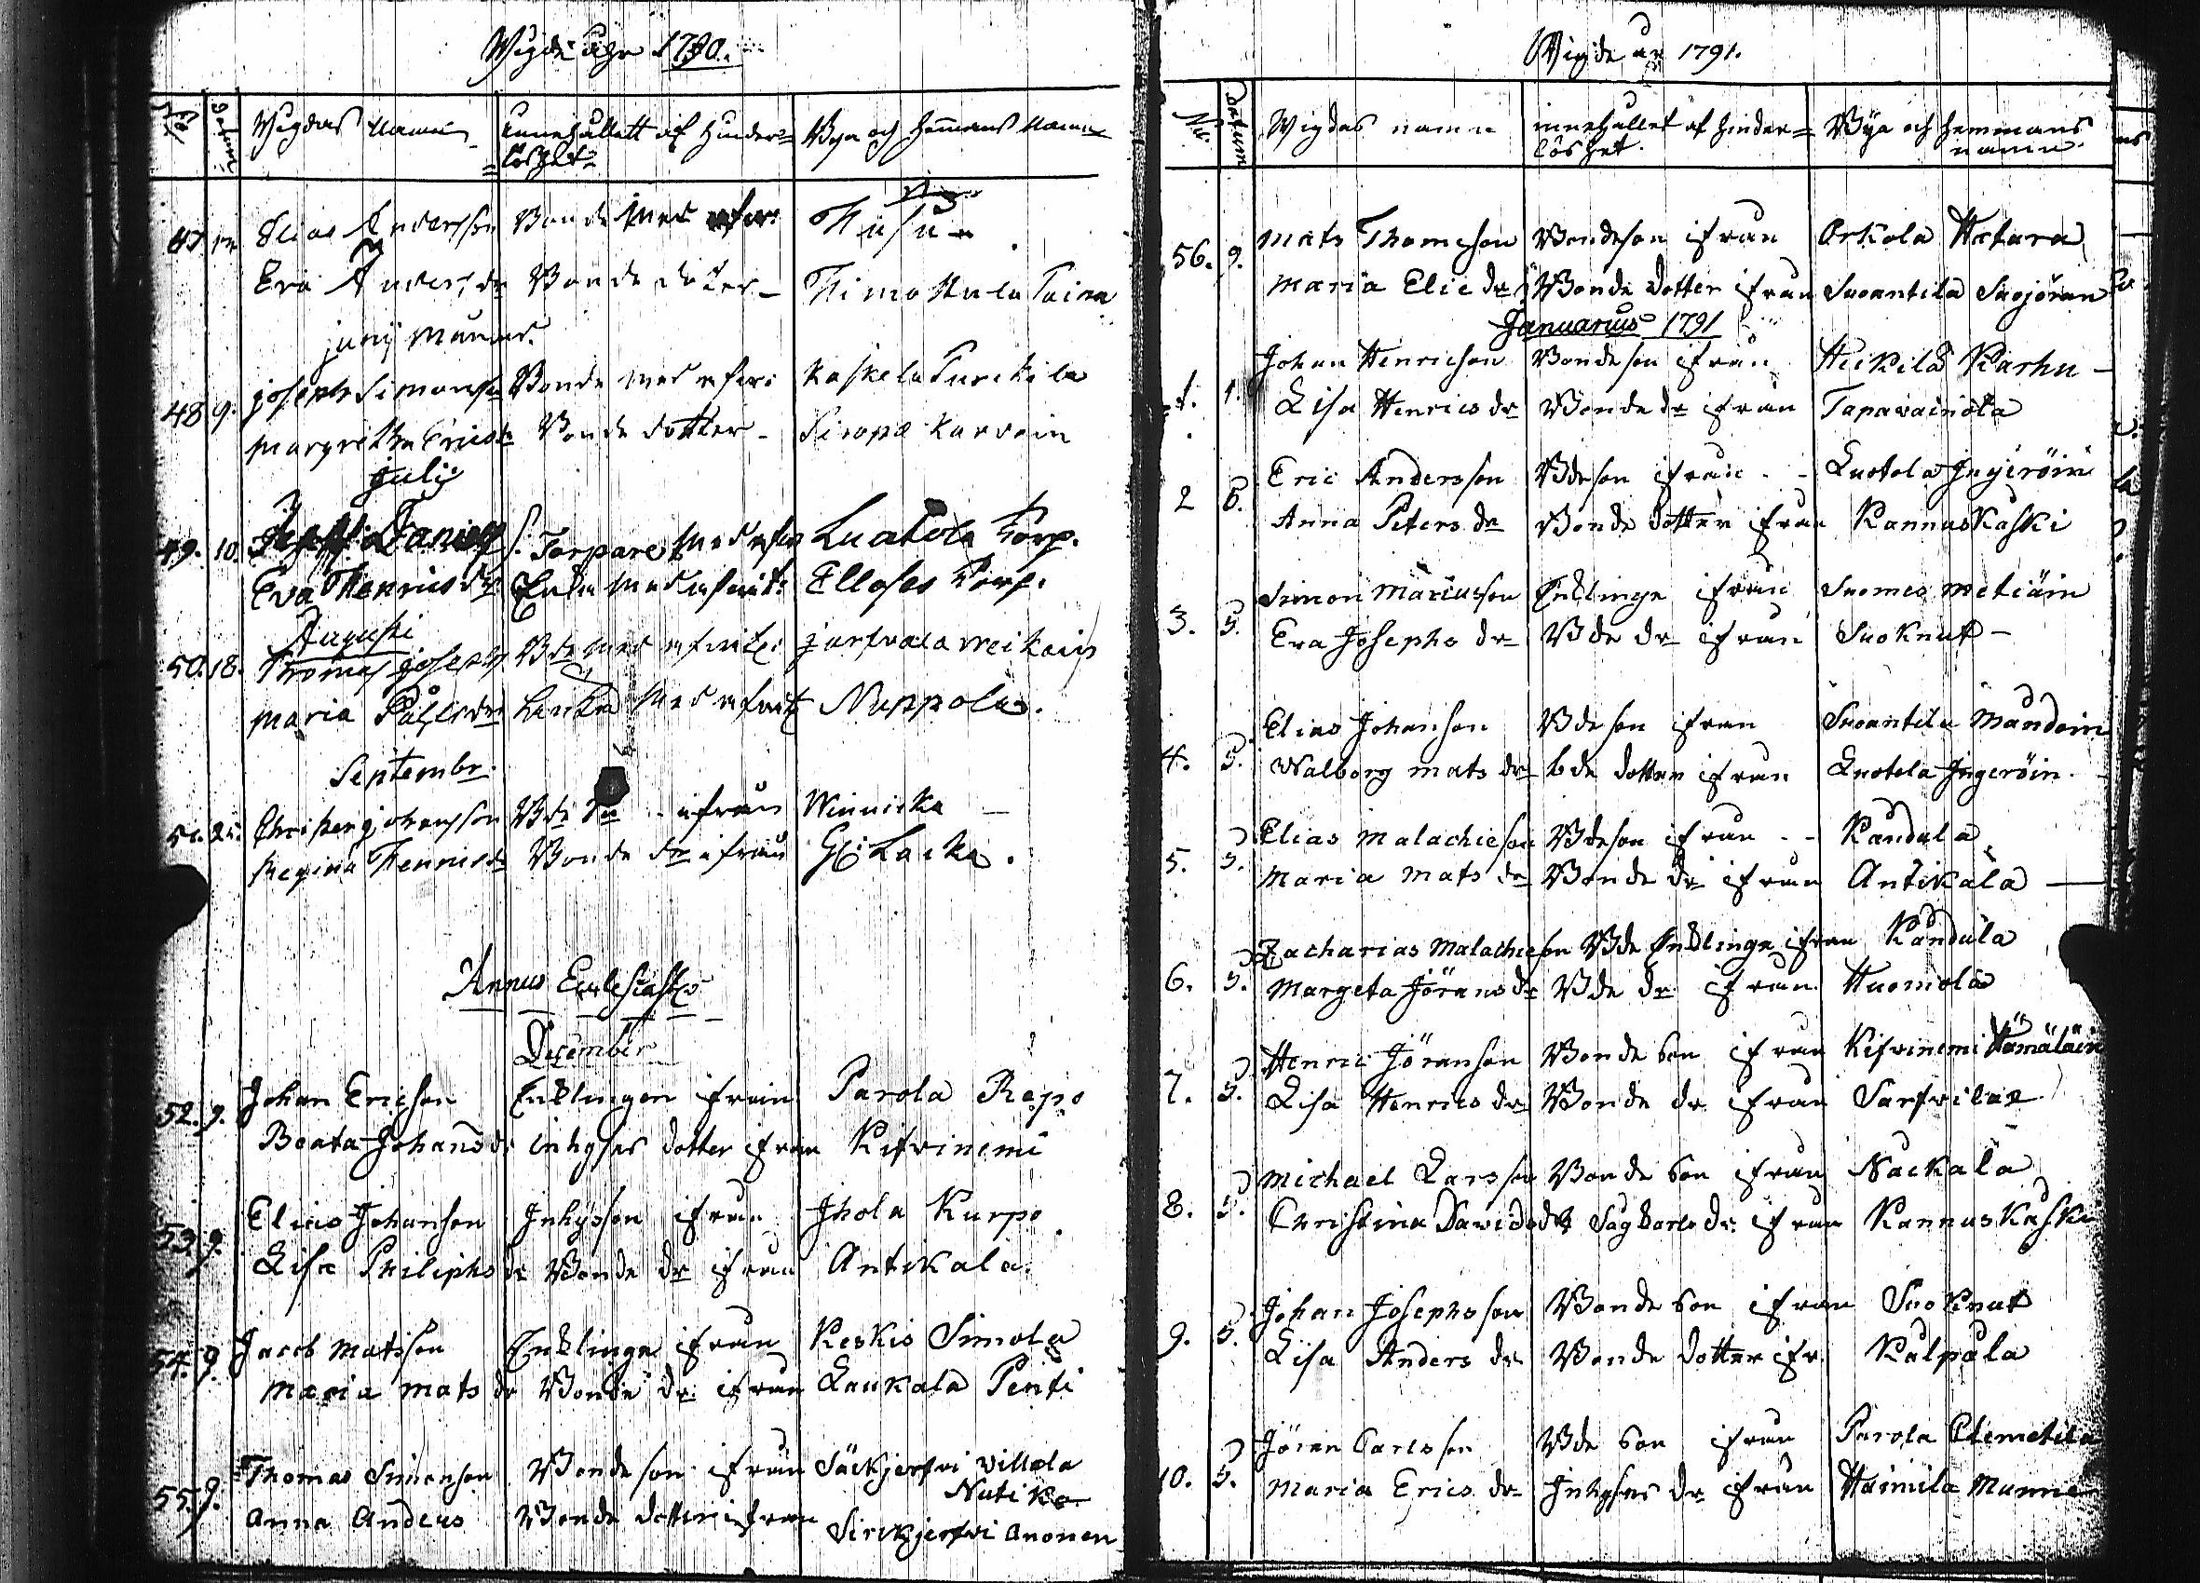 Wigde åhr 1790.
No Datum Wigdas namn Innehållett af hinder=
=löshet= Bya och hemmans namn
47 Elias Andersson Bonde med afsw: Thusu
Eva Anders dr Bonde doter - Thimottula Paina
junij Månad.
48 9. joseph Simonss Bonde med afwi: Kaskela Turckila
margretha Ericsdr Bonde dotter - Siropa Karvoin
Julij
49. 10. Daniels S. Torpare med afwi Luatola Torp.
Eva Henricsdr Enka med afwit: Elloses Torp.
Augusti
50. 18. Thomas josephs Bde med afwitt: jerfwala
Maria Påhlsdr Enka med afwit Nuppola.
Septembr.
51. 21. Christer johansson Bde ifrån Winnicka -
Regina Henricsdr Bonde dr ifrån Lacka.
Annus Ecclesiast:
December
52. 9. Johan Ericson Enklingen ifrån Parola Repo
Beata Johans dr inhyses dotter ifrån Kifvinemi
53. 9. Elias Johanson Inhysson ifrån Ihola Kurpo
Lisa Philiphs dr Bonde dr ifrån Antikala.
54. 9. Jacob Matsson Enklinge ifrån Keskis Simola
Maria Mats dr Bonde dr: ifrån Laukala Penti
55. 9. Thomas Simonson Bonde son ifrån Säckjerfvi Villala
Nutika
Anna Anders Bonde dotter ifrån Sirckjerfvi Anonen
Wigde år 1791.
No. Datum Wigdas namn innehållet af hinder=
löshet. Bya och hemmans
namn.
56. 9. Mats Thomeson Bondeson ifrån Orkola Hatara
Maria Elie dr Bonde dotter ifrån Suoantila Suojoran
Januarius 1791
1. 1. Johan Henricson Bondeson ifrån Heikilä Karhu -
Lisa Henrics dr Bonde dr ifrån Tapavainola
2 6. Eric Andersson Bdeson ifrån - - Luotola Ingeröin
Anna Peters dr Bonde dotter ifrån Kannuskaski
3. 5. Simon Marcusson Enklinge ifrån Suomes Metiäin
Eva Josephs dr Bde dr ifrån Suoknut -
4. 5. Elias Johanson Bdeson ifrån Suoantila Mandoin
Walborg Mats dr bde dotter ifrån Luotola Ingeröin.
5. 5. Elias Malachieson Bdeson ifrån - - Kandala
Maria Mats dr Bonde dr ifrån Antikala -
6. 5. Zacharias Malachieson Bde Enklinge ifrån Kandula
Margeta Jörans dr Bde dr ifrån Huomola
7. 5. Henric Jöranson Bonde son ifrån Kifvinemi Hämäläin
Lisa Henrics dr Bonde dr ifrån Sarfvilax
8. 5. Michael Larsson Bonde son ifrån Nackala
Christina Davids dr Sagkarls dr: ifrån Kannuskaski
9. 5. Johan Josephsson Bonde son ifrån Suoknut
Lisa Anders dr Bonde dotter ifr. Kalpala
10. 5. Jöran Carlsson Bde son ifrån Parola Clemetila
Maria Erics dr Inhyses dr ifrån Haimila Munne